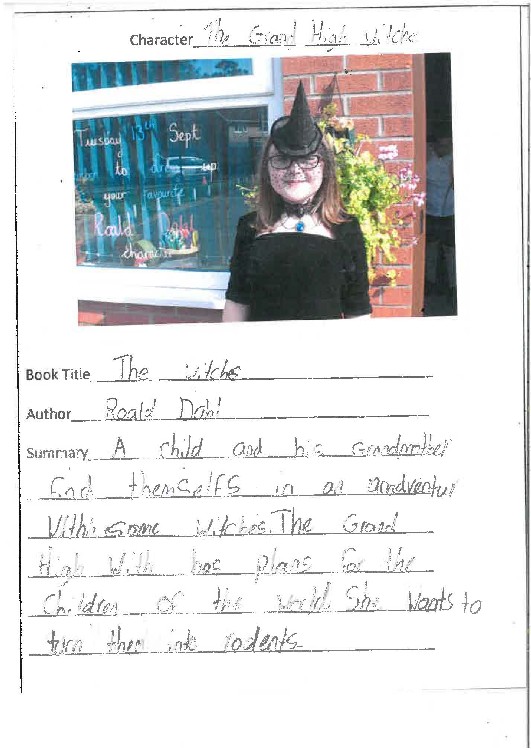 Character The Grand High witche
Tuesday 13th Sept
to dress up
your favourite
Roald Dahl
character
Book Title The witches
Author Roald Dahl
Summary A child and his Grandmother
find themselfs in an anadventur
With some witches. The Grand
High With has plans for the
Children of the world. She wants to
turn them into rodents